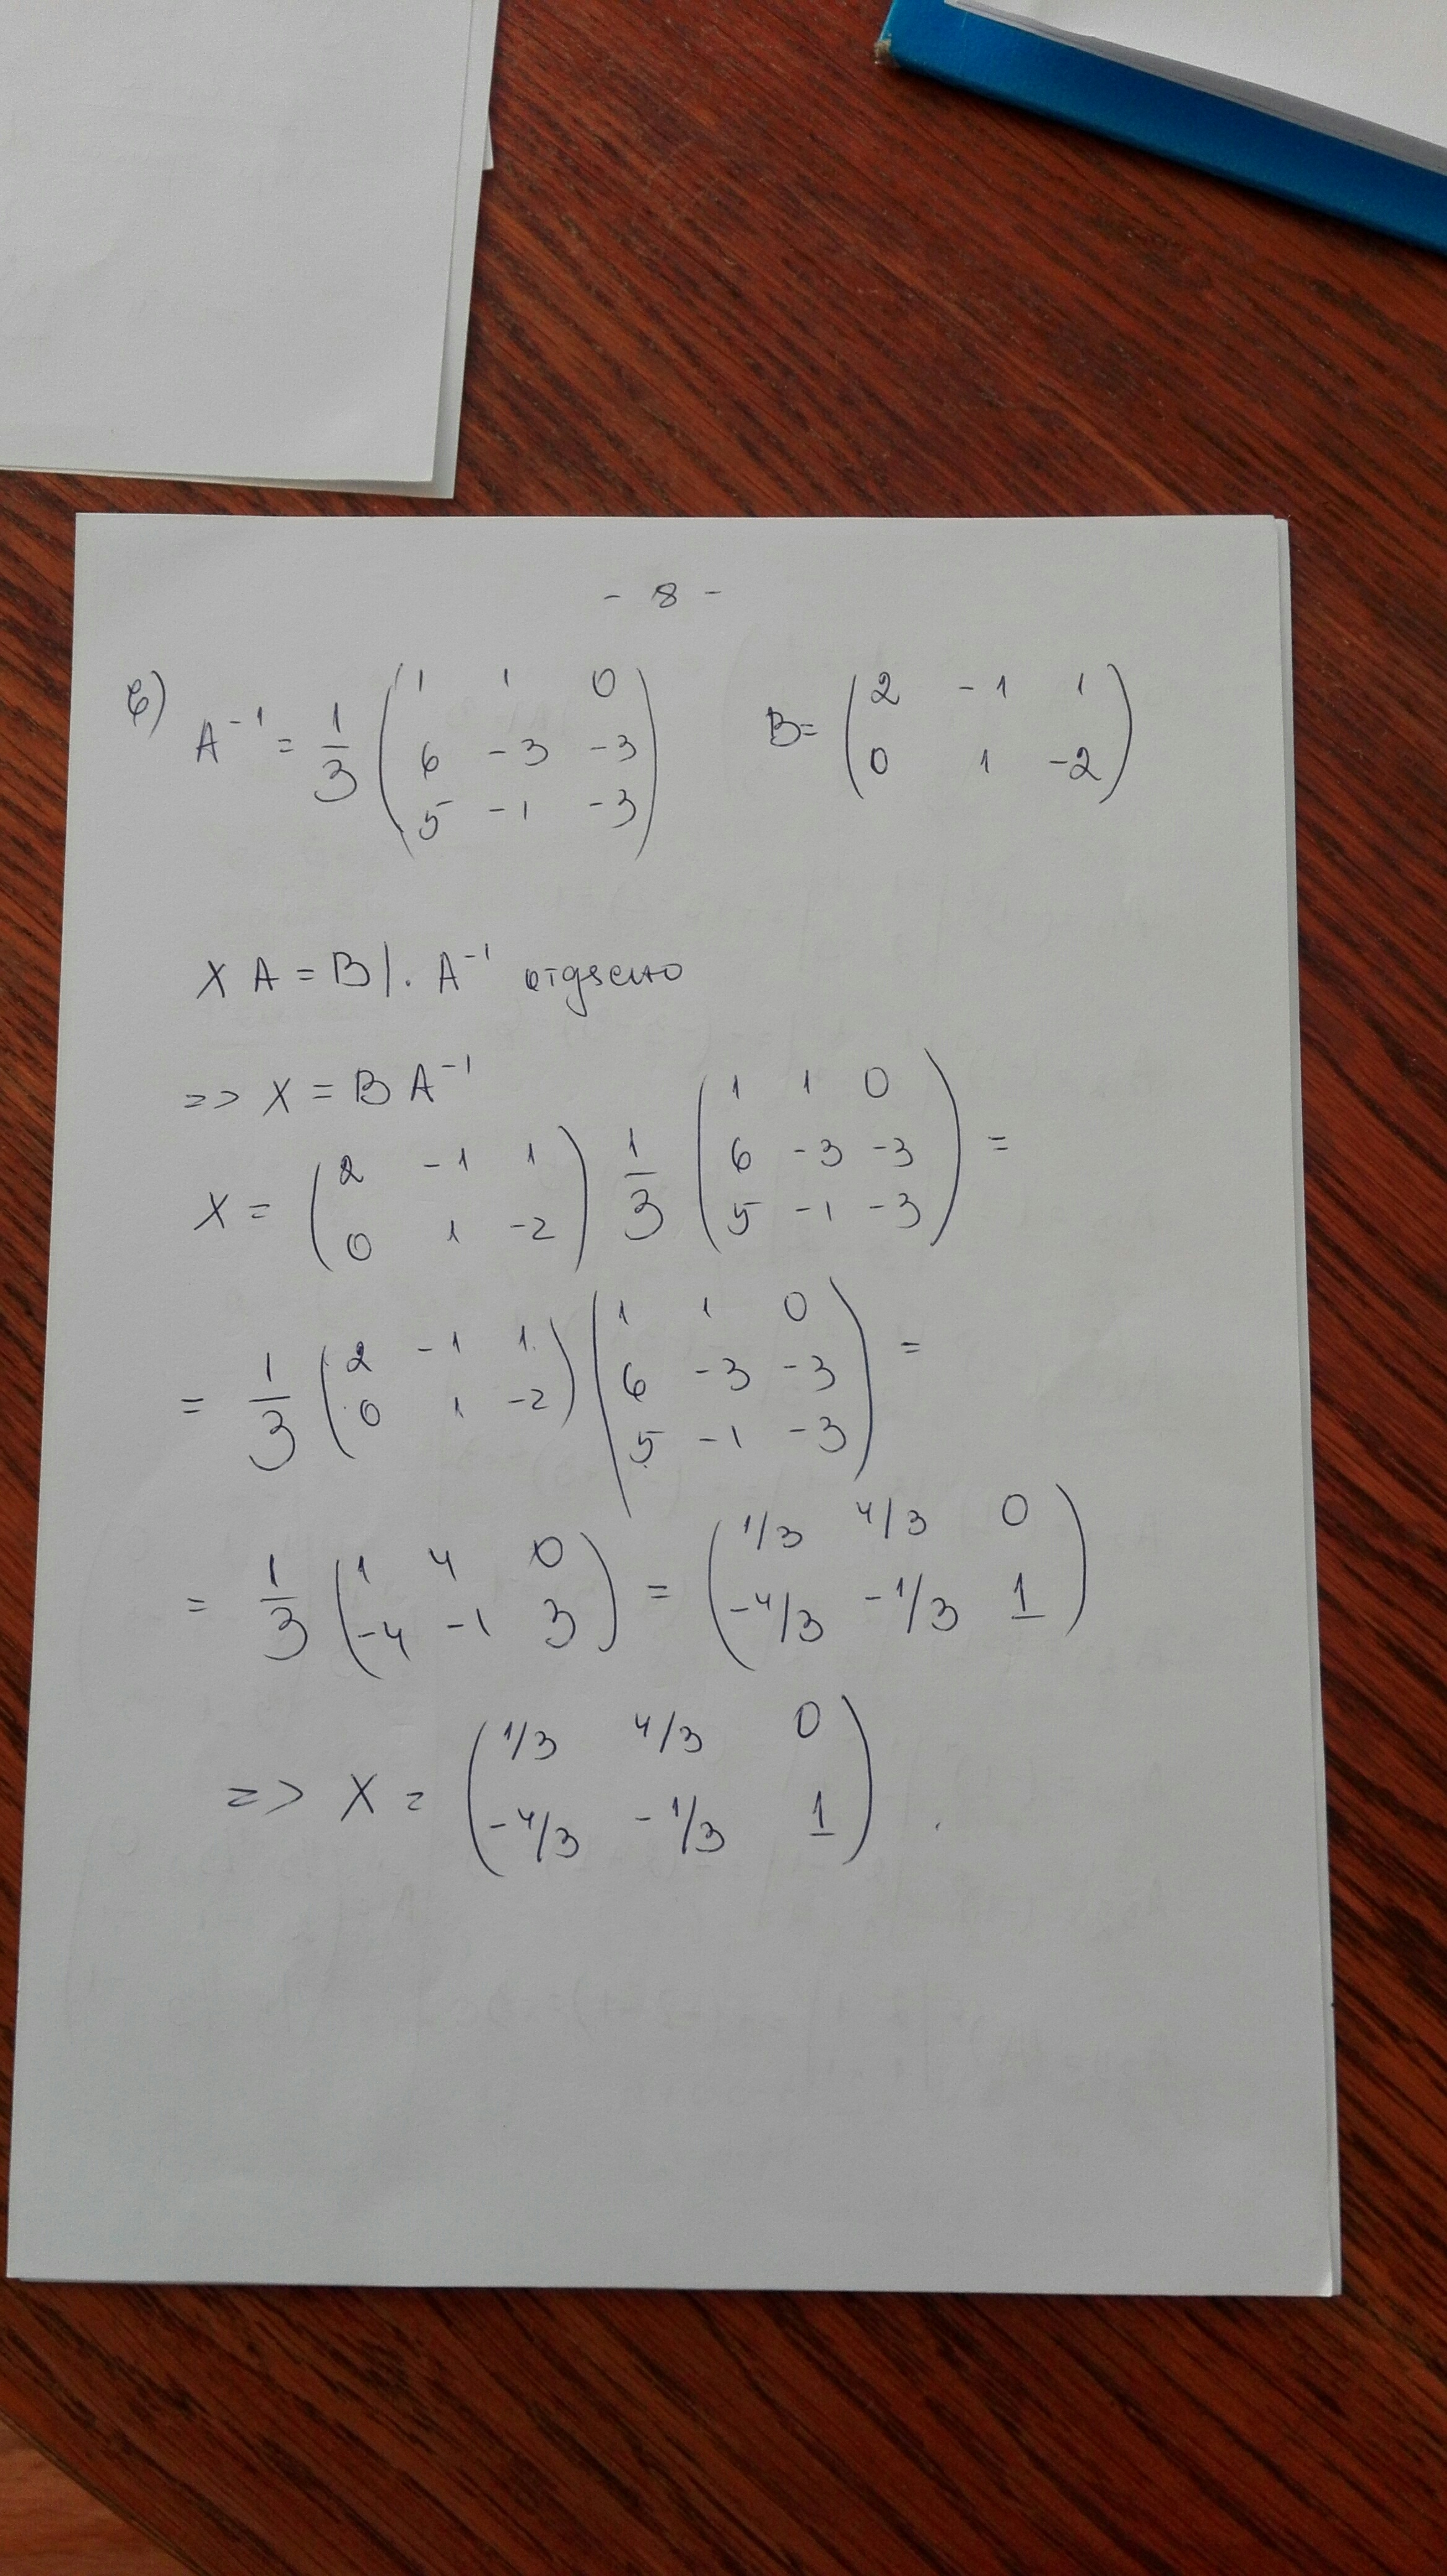 - 8 -
б) A⁻¹ = 1/3 (1 1 0; 6 -3 -3; 5 -1 -3) B= (2 -1 1; 0 1 -2)
X A = B |. A⁻¹ отдясно
=> X = B A⁻¹
X = (2 -1 1; 0 1 -2) 1/3 (1 1 0; 6 -3 -3; 5 -1 -3) =
= 1/3 (2 -1 1; 0 1 -2) (1 1 0; 6 -3 -3; 5 -1 -3) =
= 1/3 (1 4 0; -4 -1 3) = (1/3 4/3 0; -4/3 -1/3 1)
=> X = (1/3 4/3 0; -4/3 -1/3 1).